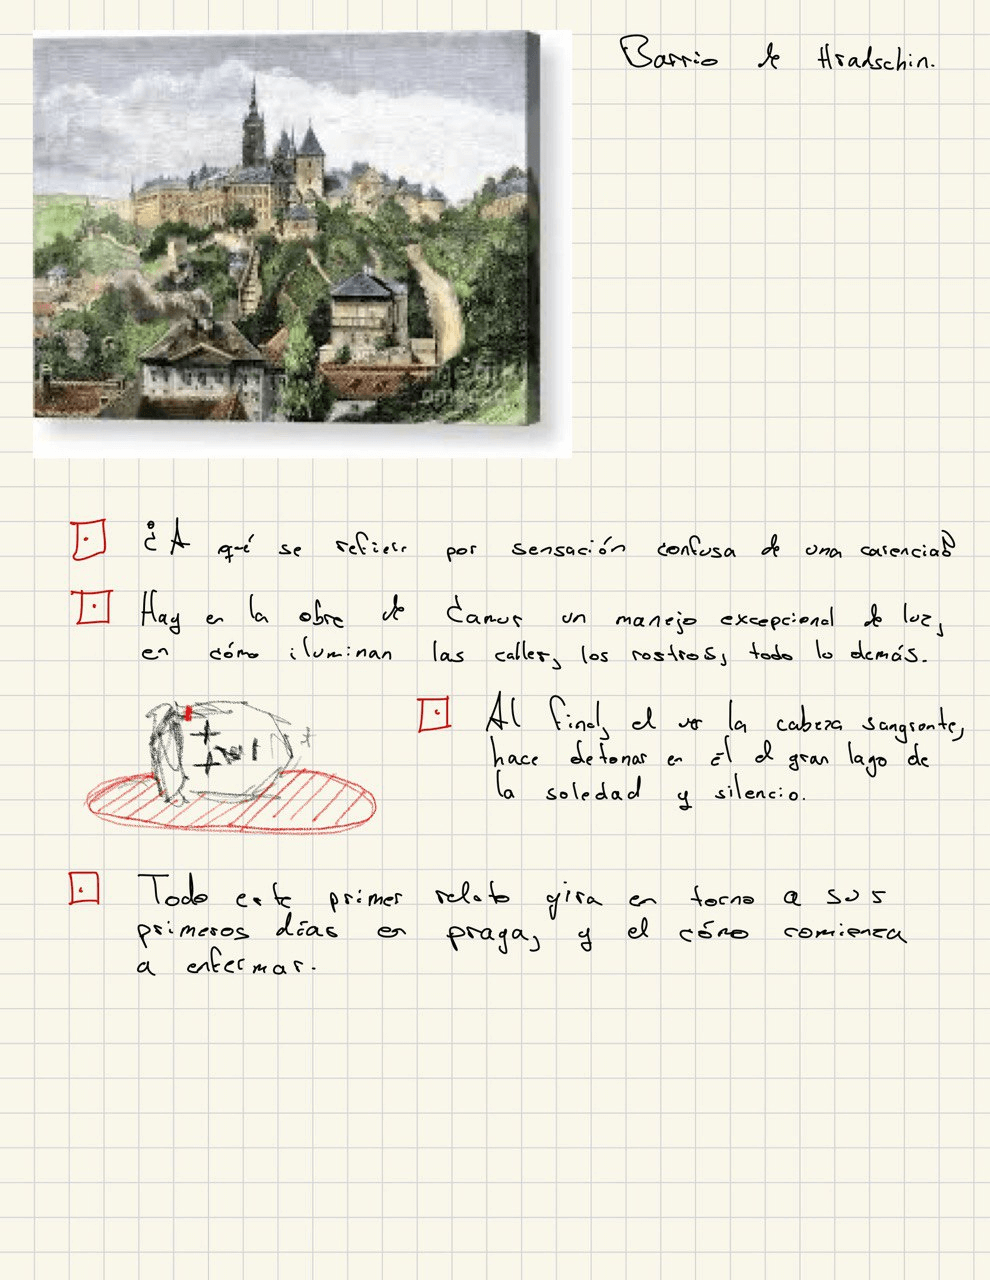 Barrio de Hradschin.
¿A qué se refiere por sensación confusa de una carencia?
Hay en la obra de Camus un manejo excepcional de luz,
en cómo iluminan las calles, los rostros, todo lo demás.
Al final, el ver la cabeza sangrante,
hace detonar en él el gran lago de
la soledad y silencio.
Todo este primer relato gira en torno a sus
primeros días en praga, y el cómo comienza
a enfermar.